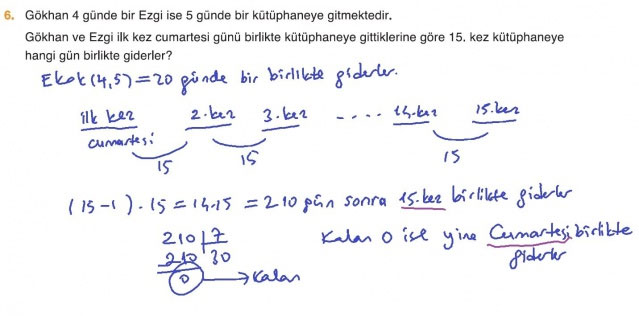 6. Gökhan 4 günde bir Ezgi ise 5 günde bir kütüphaneye gitmektedir.
Gökhan ve Ezgi ilk kez cumartesi günü birlikte kütüphaneye gittiklerine göre 15. kez kütüphaneye
hangi gün birlikte giderler?
Ekok(4,5)=20 günde bir birlikte giderler.
ilk kez 2. kez 3. kez .... 14. kez 15. kez
cumartesi
15 15 15
(15-1).15=14.15=210 gün sonra 15. kez birlikte giderler
210 7 Kalan 0 ise yine Cumartesi birlikte
210 30 giderler
0 → Kalan